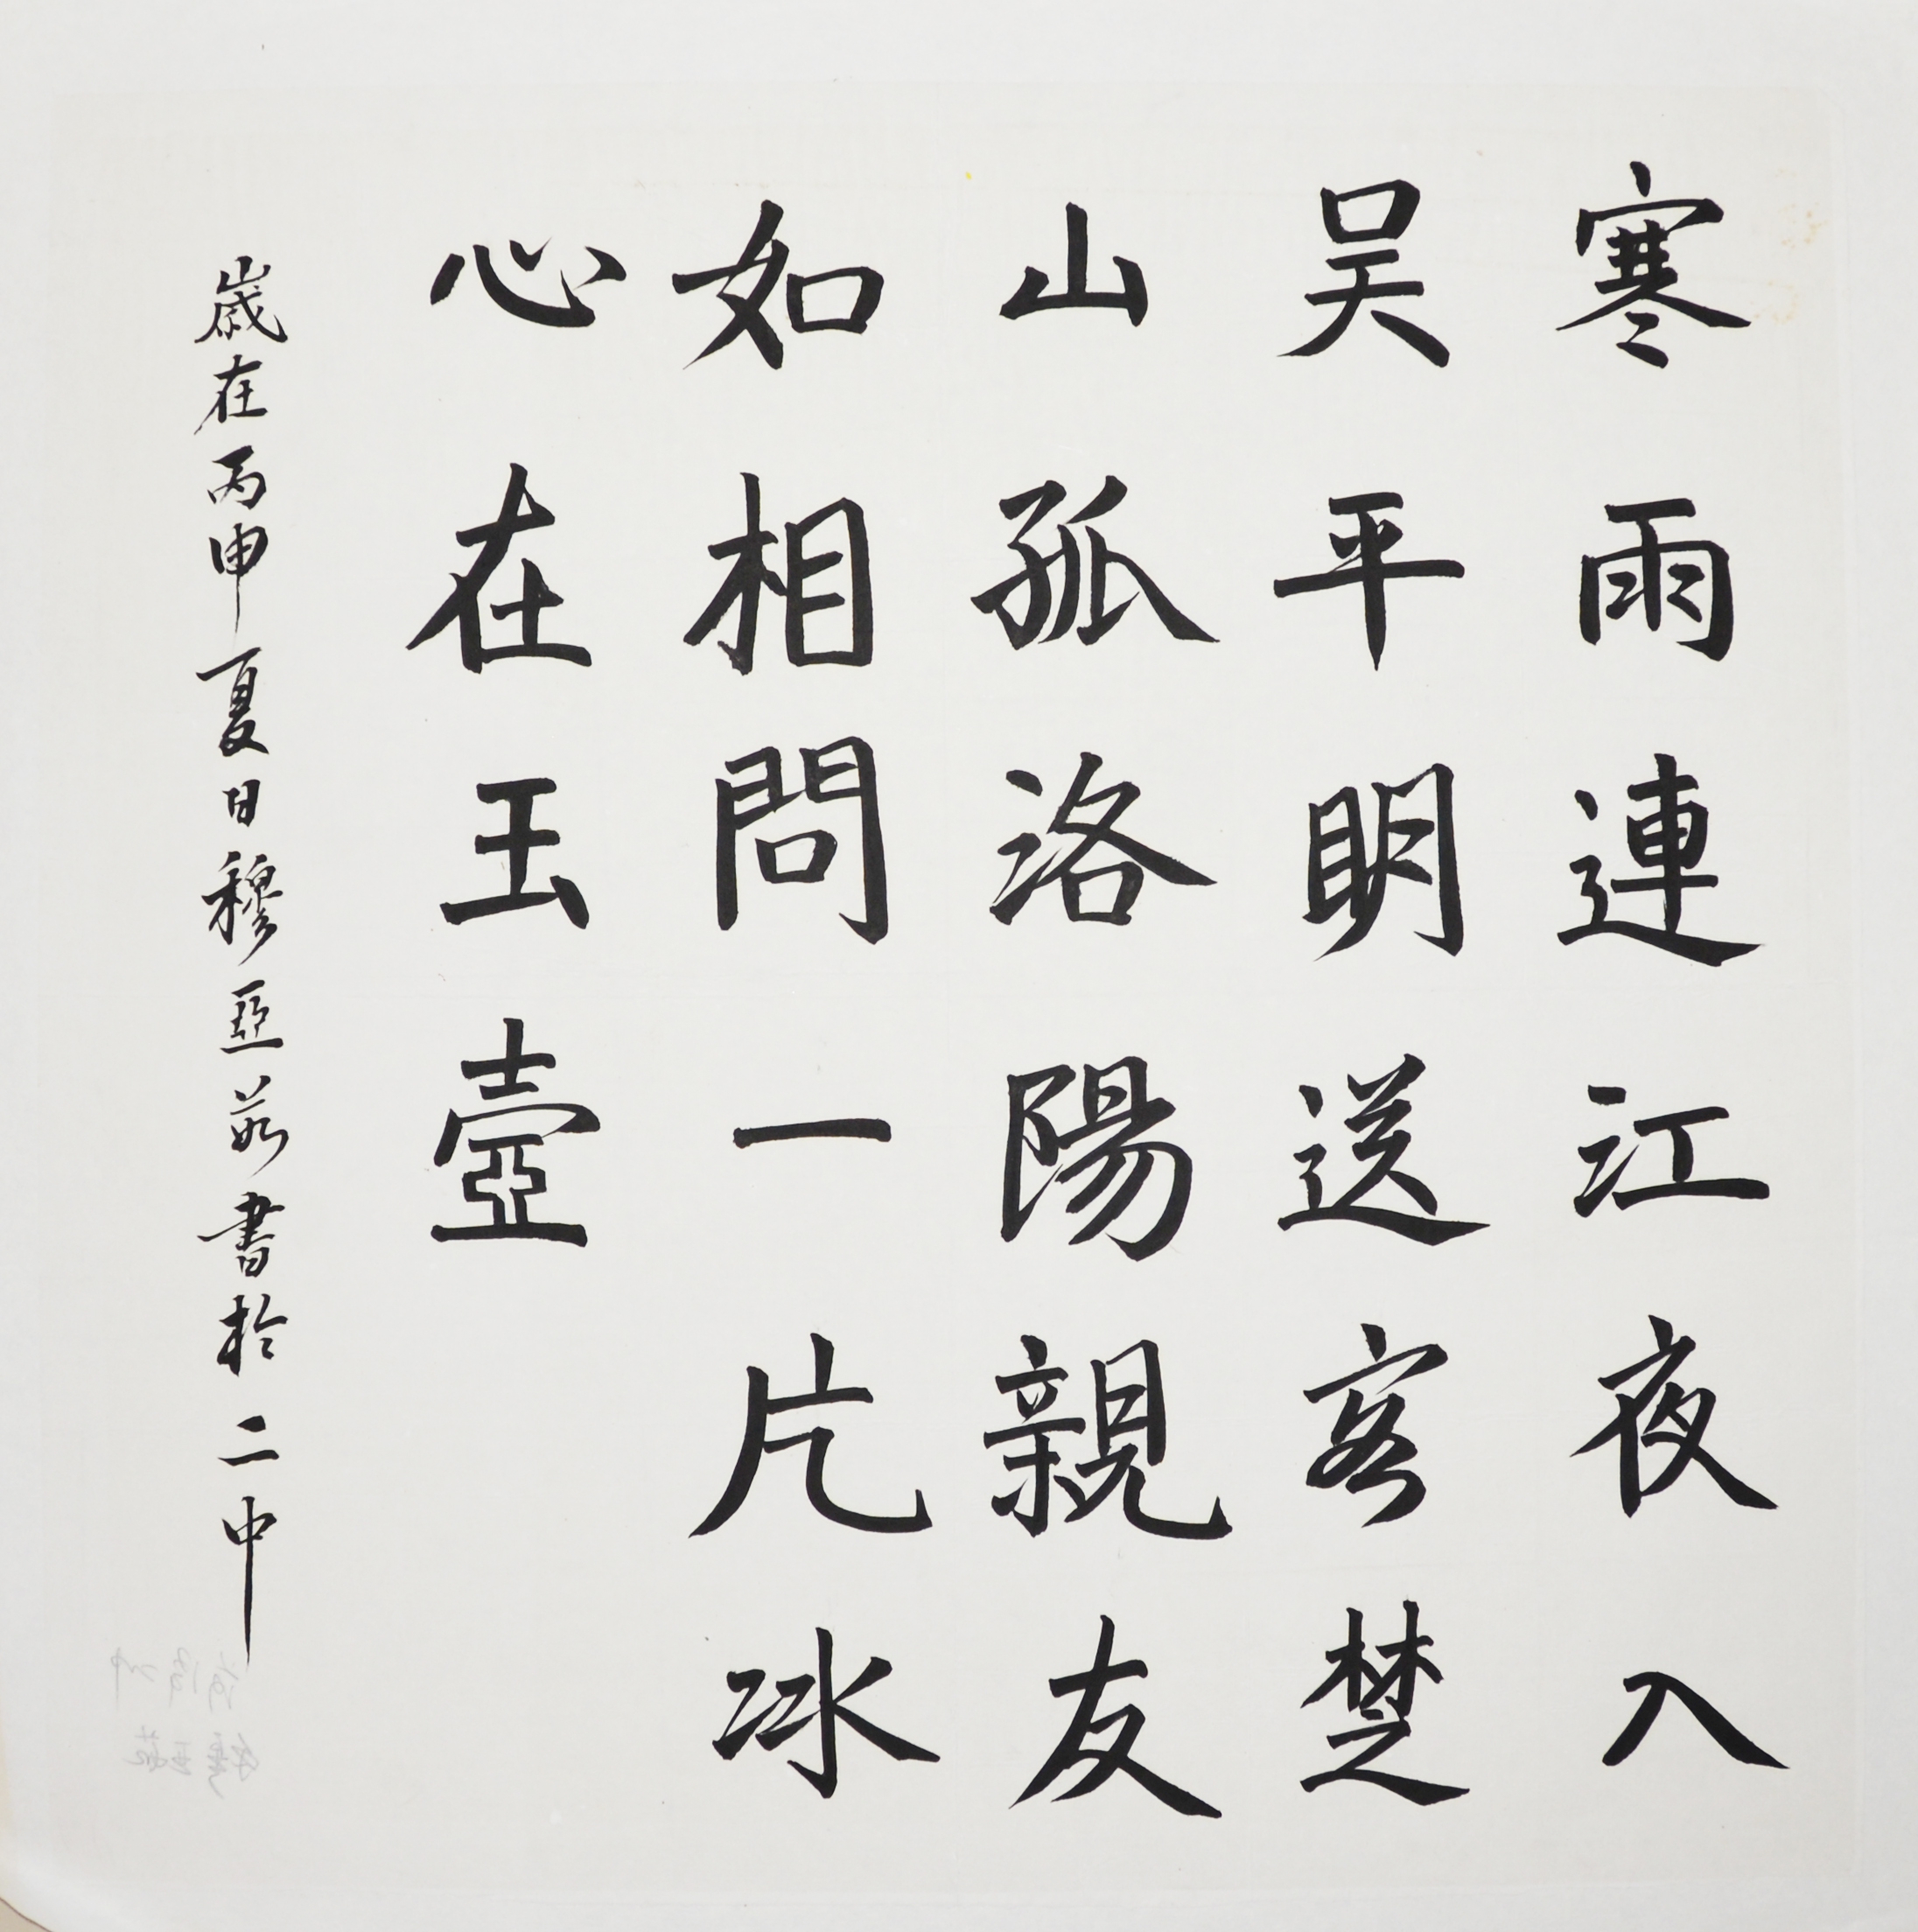 寒雨連江夜入
吴平明送客楚
山孤洛陽親友
如相問一片冰
心在玉壺
歲在丙申夏日穆亞茹書於二中